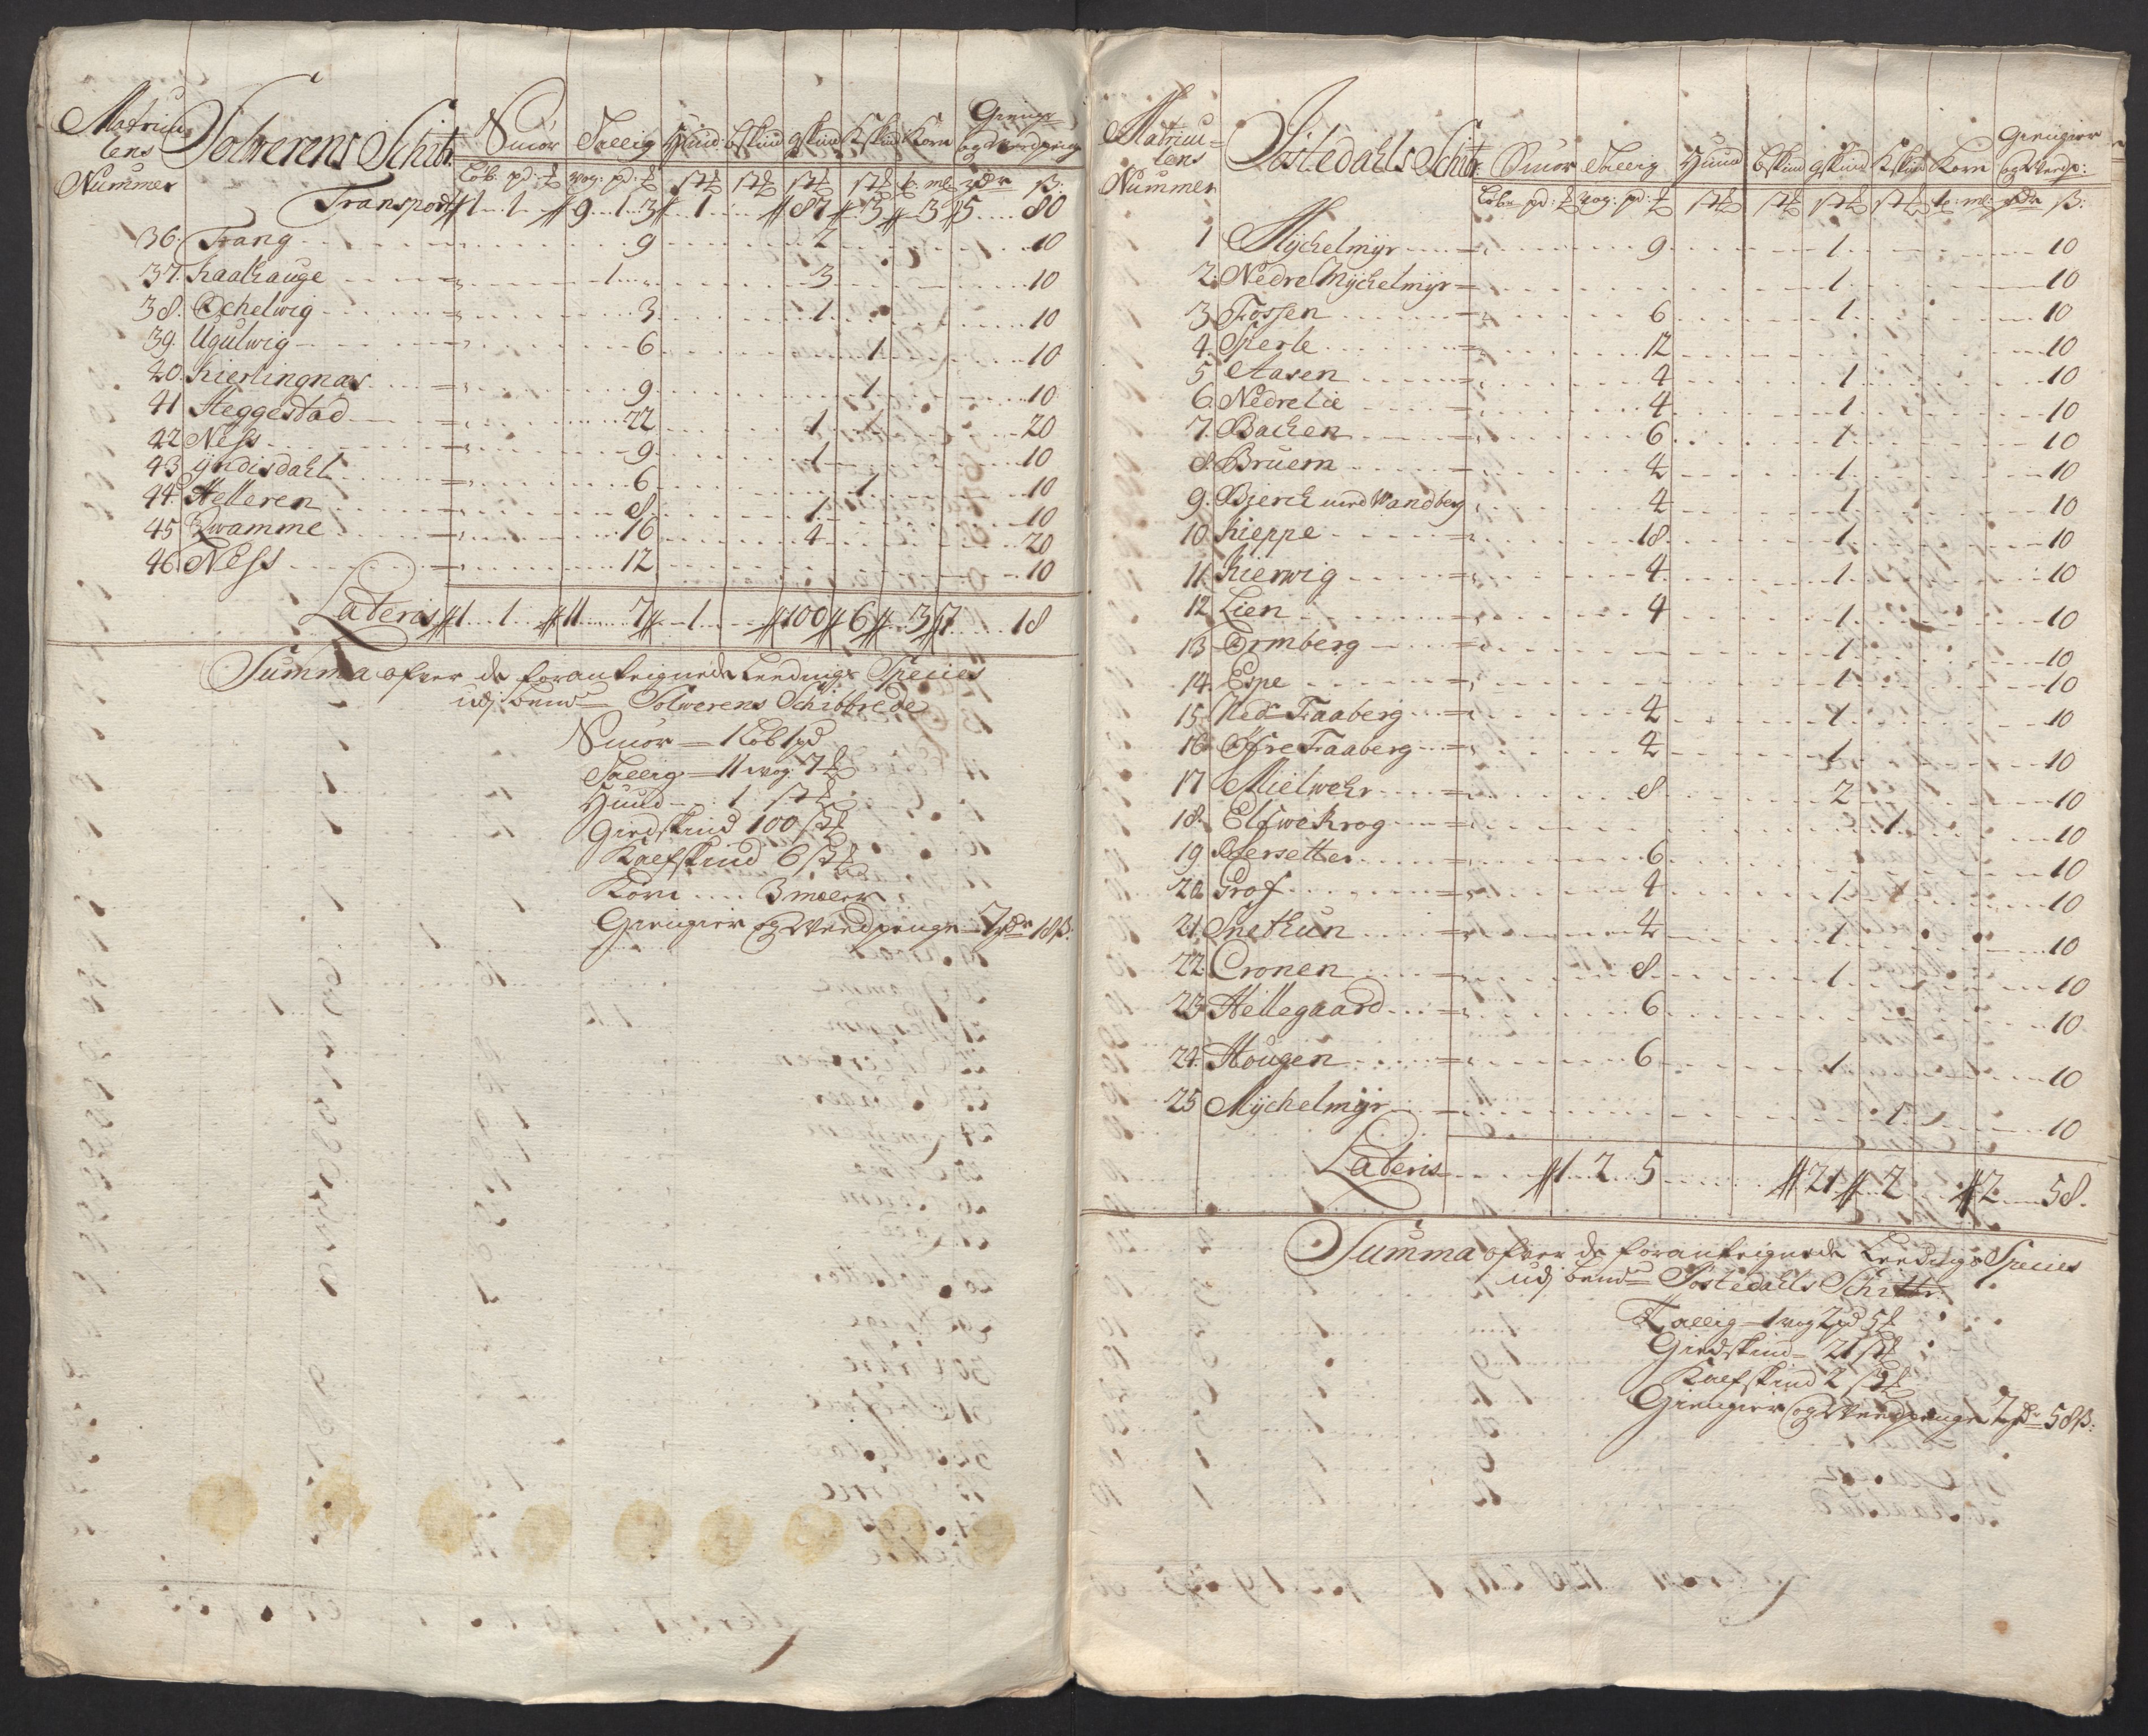 Matricu-
lens
Nummer
Solverens Schibr: Smör Tallig Huud bskind gskind Kskind Korn Giengr og Werdpenge
Lob: pd: ℔ wog: pd: ℔ st st st st t: ml: rdr ß:
Transport 1 1 9 1 3 1 87 3 3 5 80
36. Frang 9 2 10
37. Kaahauge 1 3 10
38. Ochelwig 3 1 10
39. Ugulwig 6 1 10
40. Kierlingnæs 9 1 10
41 Heggestad 22 1 20
42 Ness 9 1 10
43 ÿndisdahl 6 1 10
44. Helleren 8 1 10
45 Qwamme 16 4 20
46. Ness 12 10
Lateris 1 1 11 7 1 100 6 3 7 18
Summa ofver de foranteignede Leedings Species
udj bemte Solverens Schibbrede
Smör 1 Lob 1 pd
Tallig 11 wog: 7 ℔
Huud 1 st
Giedskind 100 st
Kalfskind 6 st
Korn 3 mæler
Giengier og Werdpenge 7 rdr 18 ß:
Matricu-
lens
Nummer
Jostedahls Schibr: Smör Tallig Huud bskind gskind Kskind Korn Giengier og Werdp:
Lob: pd: ℔ wog: pd: ℔ st st st st t: ml: rdr ß:
1 Mÿchelmÿr 9 1 10
2. Nedre Mÿchelmÿr 1 10
3 Fossen 6 1 10
4. Sperle 12 10
5 Aasen 4 1 10
6. Nedrelie 4 1 10
7. Bachen 6 1 10
8. Bruem 4 1 10
9. Bierch med Wandberg 4 1 10
10. Kieppe 18 1 10
11. Kierwig 4 1 10
12 Lien 4 1 10
13 Ormberg 1 10
14. Espe 1 10
15. Nedr Faaberg 4 1 10
16. Öfre Faaberg 4 1 10
17 Mielwehr 8 2 10
18. Elfwekrog 1 10
19 Giersetter 6 10
20. Grof 4 1 10
21. Snethun 4 1 10
22. Cronen 8 1 10
23. Hellegaard 6 10
24. Hougen 6 1 10
25 Mÿchelmÿr 1 10
Lateris 1 2 5 21 2 2 58.
Summa ofver de foranteignede Leedings Species
udj bemte Jostedahls Schibr:
Tallig 1 wog 2 pd 5 ℔
Giedskind 21 st
Kalfskind 2 st
Giengier og Werdpenge 2 rdr 58 ß: